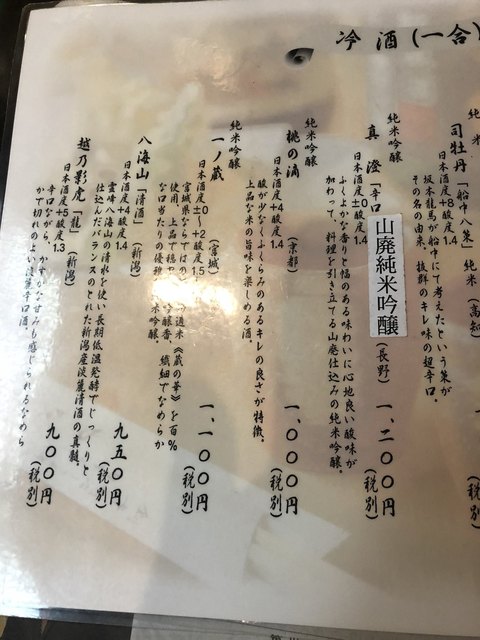 冷酒(一合)
司牡丹「船中八策」純米(高知)
日本酒度+8酸度1.4
坂本龍馬が船中にて考えたという策が
その名の由来。抜群のキレ味の超辛口。
(税別)
純米吟醸
真澄「辛口
山廃純米吟醸
(長野)
日本酒度±0酸度1.4
ふくよかな香りと幅のある味わいに心地良い酸味が
加わって、料理を引き立てる山廃仕込みの純米吟醸。
一、二〇〇円
(税別)
純米吟醸
桃の滴(京都)
日本酒度+4酸度1.4
酸が少なくふくらみのあるキレの良さが特徴。
上品なお米の旨味を楽しめる酒。
一、〇〇〇円
(税別)
純米吟醸
一ノ蔵(宮城)
日本酒度±0~+2酸度1.5
宮城県ならではの
適米《蔵の華》を百%
使用。上品で穏や
吟醸香、繊細でなめらか
な口当たりの優
米吟醸
一、一〇〇円
(税別)
八海山「清酒」(新潟)
日本酒度+4酸度1.4
霊峰八海山の清水を使い長期低温発酵でじっくりと
仕込んだバランスのとれた新潟産淡麗清酒の真髄。
九五〇円
(税別)
越乃影虎「龍」(新潟)
日本酒度+5酸度1.3
辛口ながら、かすかな甘みも感じられるなめら
かで切れのよい淡麗辛口酒。
九〇〇円
(税別)